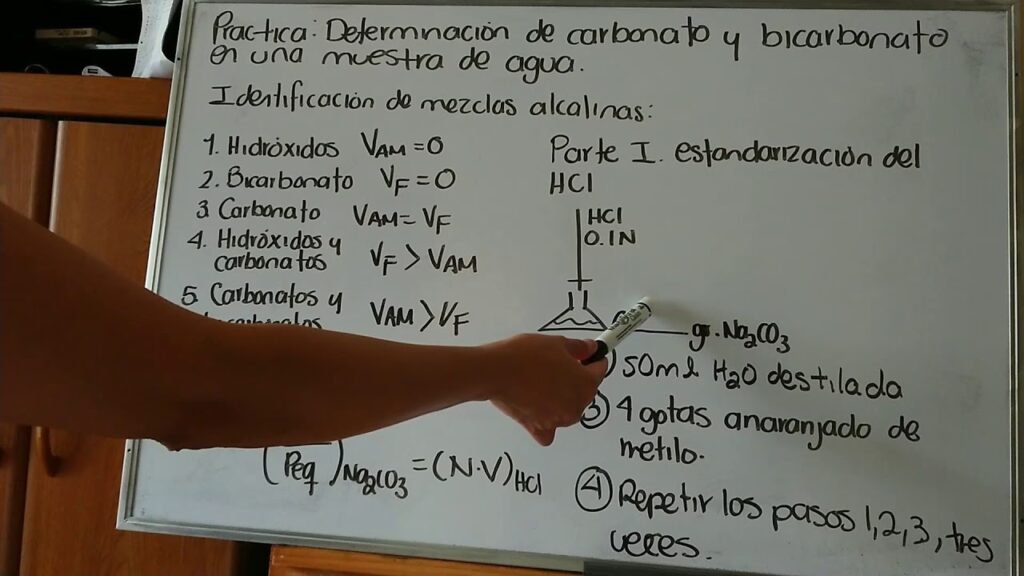 Práctica: Determnación de carbonato y bicarbonato
en una muestra de agua.
Identificación de mezclas alcalinas:
1. Hidróxidos VAM = 0
2. Bicarbonato VF = 0
3 Carbonato VAM = VF
4. Hidróxidos y
carbonatos VF > VAM
5. Carbonatos y
VAM > VF
Parte I. estandarización del
HCl
HCl
0.1N
gr. Na2CO3
50ml H2O destilada
③ 4 gotas anaranjado de
metilo.
④ Repetir los pasos 1,2,3, tres
veces.
(Peq)Na2CO3 = (N.V)HCl